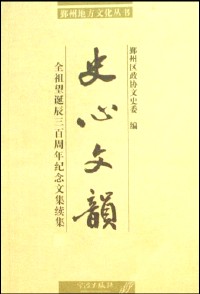 鄞州地方文化丛书
鄞州区政协文史委 编
史心文韻
全祖望诞辰三百周年纪念文集续集
宁波出版社